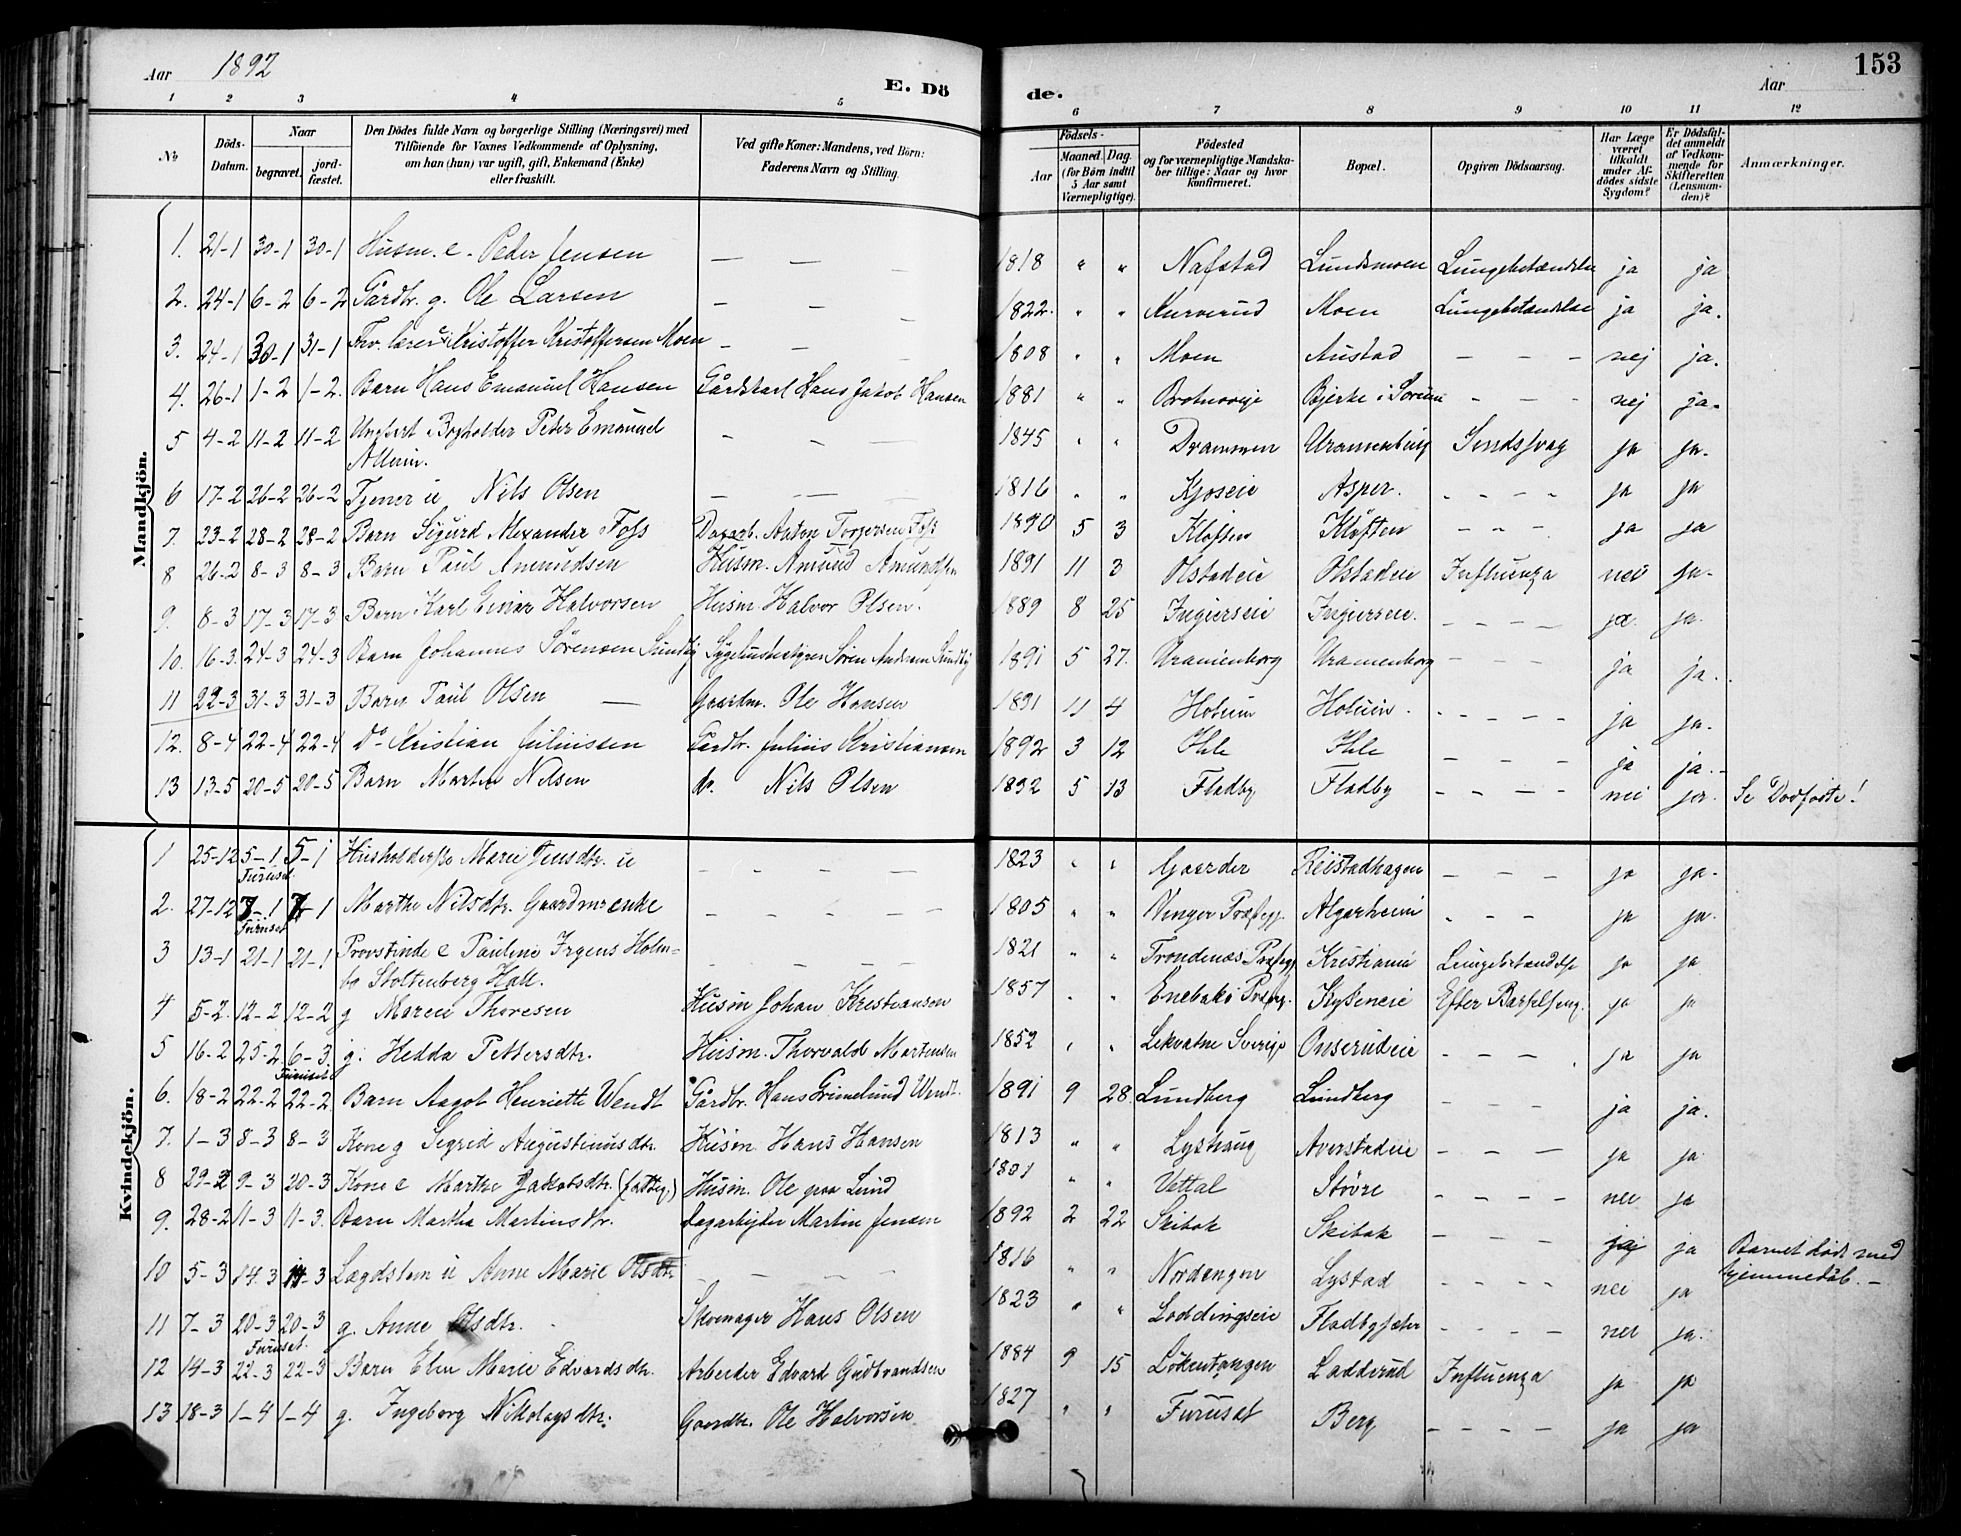 Aar 1892
E. Dö
de.
Aar
153
1 2 3 4 5 6 7 8 9 10 11 12
No
Döds-Datum.
Naar
begravet.
jord-fæstet.
Den Dödes fulde Navn og borgerlige Stilling (Næringsvei) med
Tilföiende for Voxnes Vedkommende af Oplysning,
om han (hun) var ugift, gift, Enkemand (Enke)
eller fraskilt.
Ved gifte Koner: Mandens, ved Börn:
Faderens Navn og Stilling.
Födsels-
Aar
Maaned. Dag.
(for Börn indtil 5 Aar samt Værnepligtige).
Födested
og for værnepligtige Mandska-
ber tillige: Naar og hvor
konfirmeret.
Bopæl.
Opgiven Dödsaarsag.
Har Læge været tilkaldt under Af-dödes sidste Sygdom?
Er Dödsfal-det anmeldt af Vedkom-mende for Skifteretten (Lensman-den)?
Anmærkninger.
Mandkjön.
1. 21-1 30-1 30-1 Husm. e. Peder Jensen — — — 1818 " " Nafstad Lundsmoen Lungebetændelse ja ja
2. 24-1 6-2 6-2 Gårdbr. g. Ole Larsen — — — 1822. " " Kurverud Moen Lungebetændelse ja ja.
3. 24-1 30-1 31-1 Fhv. lærer Kristoffer Kristoffersen Moen — — — 1808 " " Moen Austad — — — nej ja.
4. 26-1 1-2 1-2. Barn Hans Emanuel Hansen Gårdskarl Hans Jakob Hansen 1881 " " Brotnovie Bjerke i Sørum — — — nej ja.
5 4-2 11-2 11-2 Ungkart Bogholder Peter Emanuel — — — 1845 " " Drammen Uranienburg Sindssvag ja ja.
Allum.
6 17-2 26-2 26-2 Tjener u Nils Olsen — — — 1816 " " Kjoseie Asper. — — — — ja ja
7. 23-2 28-2 28-2 Barn Sigurd Alexander Foss Dagarb. Anton Torgersen Foss 1890 5 3 Kløften Kløften — — — ja ja
8 26-2 8-3 8-3 Barn Paul Amundsen Husm. Amund Amundsen 1891 11 3 Olstadeie Olstadeie Influenza nei ja.
9. 8-3 17-3 17-3 Barn Karl Einar Halvorsen Husm Halvor Olsen. 1889 8 25 Ingierseie Ingierseie. — — — — ja. ja.
10. 16-3. 24-3 24-3 Barn Johannes Sørensen Sundby Sygehusbestyrer Søren Andersen Sundby 1891 5 27. Uranienborg Uranienborg — — — — ja ja.
11 22-3 31-3 31-3 Barn Paul Olsen — Gaardm. Ole Hansen 1891 11 4 Holum Holum. — — — — ja ja.
12. 8-4 22-4 22-4 Do Kristian Juliussen Gardbr. Julius Kristiansen 1892 3 12 Ihle Ihle — — — — ja ja.
13 13-5 20-5 20-5 Barn Martin Nilsen do. Nils Olsen 1892 5 13 Fladby Fladby — — — — nei ja. Se Dødfødte!
Kvindekjön.
1 25-12 5-1 5-1 Husholderske Marie Jensdtr. u — — — — 1823 " " Gaarder Reistadhagen — — — ja ja.
Furuset.
2. 27-12 7-1 7-1 Marthe Nilsdtr. Gaardmrenke — — — — — 1805 " " Vinger Præstegj. Algarheim — — — ja ja.
Furuset
3 13-1 21-1 21-1 Provstinde e Pauline Irgens Holm- — — — — 1821 " " Trondenæs Præstegj Kristiania Lungebetændelse ja ja
bo Stoltenberg Hall.
4 5-2. 12-2 12-2 g Maren Thoresen Husm Johan Kristianson 1857 " " Enebak Præstegj. Kykeneie Efter Barselseng. ja ja
5 16-2 25-2 6-3 g. Hedda Pettersdtr. Husm. Thorvald Martinsen 1852 " " Lekvatne Sverige Onserudeie — — — ja ja
Furuset
6. 18-2 22-2 22-2 Barn Aagot Henriette Wendt Gårdbr. Hans Grimelund Wendt. 1891 9 28. Lundberg Lundberg — — — ja ja.
7. 1-3 8-3 8-3 Kone g Sigrid Augustinusdtr. Husm. Hans Hansen 1813 " " Lyshaug Averstadeie — — — ja ja
8 29-2 9-3 20-3 Kone e Marthe Jakobsdtr. (fattig.) Husm. Ole paa Lund 1801 " " Vettal Støvre — — — — nei ja
9. 28-2 11-3 11-3. Barn Martha Martinsdtr. Dagarbejder Martin Jensen 1892 2 22 Skibak Skibak — — — ja ja Barnet dødt med
hjemmedåb. —
10 5-3 14-3 14-3 Lægdslem u Anne Marie Olsdtr — — — — 1816 " " Nordengen Lystad — — — — nei ja
11 7-3 20-3 20-3 g. Anne Olsdtr. Skomager Hans Olsen 1823 " " Loddingseie Fladbysæter — — — — nei ja.
Furuset.
12 14-3 22-3 22-3 Barn Elen Marie Edvardsdtr. Arbeider Edvard Gudbrandsen 1884 9 15 Løkentangen Ladderud Influenza ja ja
13 18-3 1-4 1-4 g. Ingeborg Nikolaysdtr. Gaardbr. Ole Halvorsen 1827 " " Furuset Berg — — — — ja ja